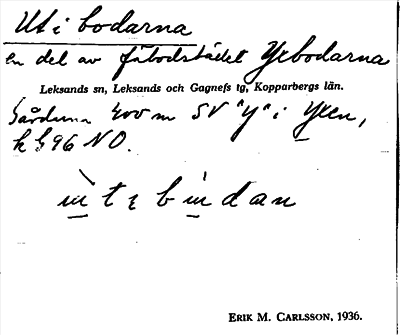 Ut i bodarna
en del av fäbodstället Yxbodarna
Leksands sn, Leksands och Gagnefs tg, Kopparbergs län.
Gårdarna 400 m SV "Y" i Yxen,
k 96 NO.
ERIK M. CARLSSON, 1936.